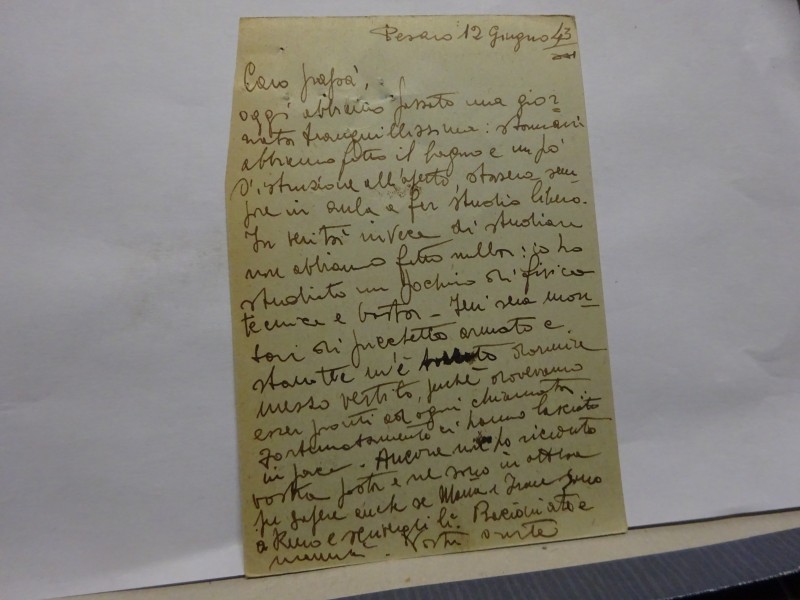 Pesaro 12 Giugno 43
Caro papà,
oggi abbiamo passato una gior
nata tranquillissima: stamani
abbiamo fatto il bagno e un po'
d'istruzione all'aperto, stasera sem
pre in aula a far studio libero.
In verità invece di studiare
non abbiamo fatto nulla: io ho
studiato un pochino di fisica
tecnica e basta - Ieri sera mon
tai di picchetto armato e
stanotte m'è dormire
mezzo vestito, perché dovevamo
esser pronti ad ogni chiamata.
Fortunatamente ci hanno lasciato
in pace. Ancora non ho ricevuto
vostra posta e ne sono in attesa
per sapere anche se Maria e sono
a e
mamma. Vostro